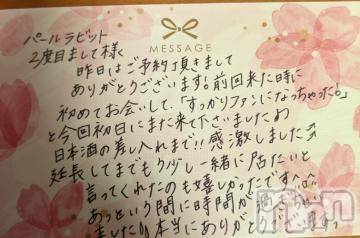 MESSAGE
パールラビット
2度目まして様
昨日はご予約頂きまして
ありがとうございます。前回来た時に
初めてお会いして、「すっかりファンになっちゃった。」
と今回初日にまた来て下さいましたね
日本酒の差し入れまで!!感激しました
延長してまでもう少し一緒に居たいと
言ってくれたのも嬉しかったです^^
あっという間に時間が
ました 本当にありがと